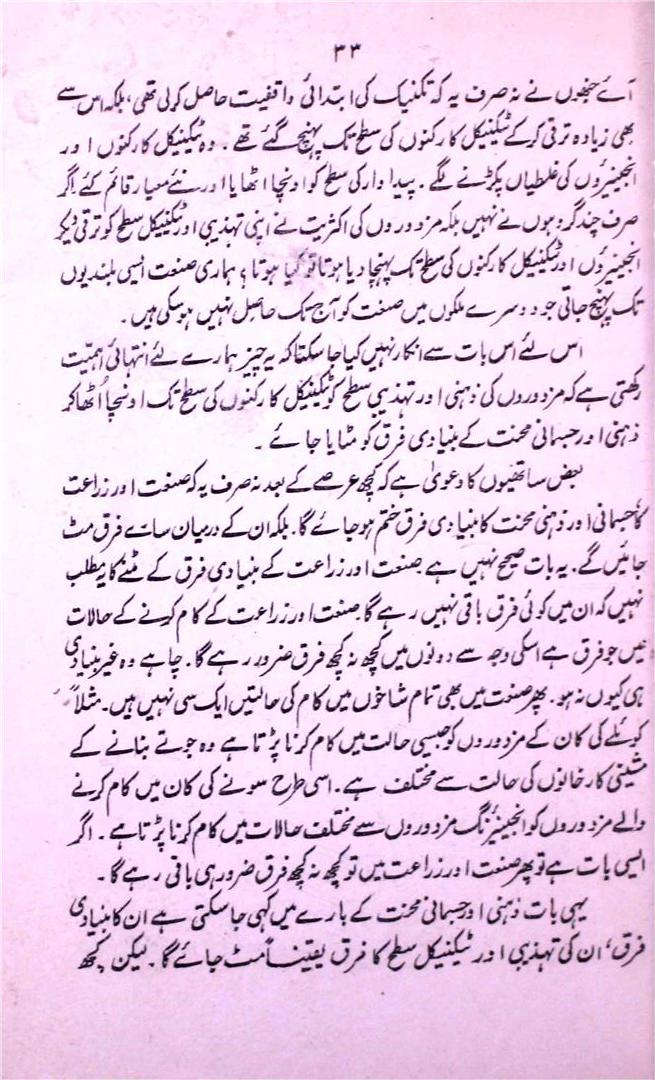 ۳۳
آئے جنھوں نے نہ صرف یہ کہ تکنیک کی ابتدائی واقفیت حاصل کرلی تھی، بلکہ اس سے
بھی زیادہ ترقی کرکے ٹیکنیکل کارکنوں کی سطح تک پہنچ گئے تھے۔ وہ ٹیکنیکل کارکنوں اور
انجینیروں کی غلطیاں پکڑنے لگے۔ پیداوار کی سطح کو اونچا اٹھایا اور نئے معیار قائم کئے اگر
صرف چند گروہوں نے نہیں بلکہ مزدوروں کی اکثریت نے اپنی تہذیبی اور ٹیکنیکل سطح کو ترقی دیکر
انجینیروں اور ٹیکنیکل کارکنوں کی سطح تک پہنچا دیا ہوتا تو کیا ہوتا؟ ہماری صنعت ایسی بلندیوں
تک پہنچ جاتی جو دوسرے ملکوں میں صنعت کو آج تک حاصل نہیں ہوسکی ہیں۔
اس لئے اس بات سے انکار نہیں کیا جاسکتا کہ یہ چیز ہمارے لئے انتہائی اہمیّت
رکھتی ہے کہ مزدوروں کی ذہنی اور تہذیبی سطح کو ٹیکنیکل کارکنوں کی سطح تک اونچا اُٹھا کر
ذہنی اور جسمانی محنت کے بنیادی فرق کو مٹایا جائے۔
بعض ساتھیوں کا دعویٰ ہے کہ کچھ عرصے کے بعد نہ صرف یہ کہ صنعت اور زراعت
کا جسمانی اور ذہنی محنت کا بنیادی فرق ختم ہو جائے گا۔ بلکہ ان کے درمیان سارے فرق مٹ
جائیں گے۔ یہ بات صحیح نہیں ہے۔ صنعت اور زراعت کے بنیادی فرق کے مٹنے کا یہ مطلب
نہیں کہ ان میں کوئی فرق باقی نہیں رہے گا۔ صنعت اور زراعت کے کام کرنے کے حالات
میں جو فرق ہے اسکی وجہ سے دونوں میں کچھ نہ کچھ فرق ضرور رہے گا۔ چاہے وہ غیر بنیادی
ہی کیوں نہ ہو۔ پھر صنعت میں بھی تمام شاخوں میں کام کی حالتیں ایک سی نہیں ہیں۔ مثلاً
کوئلے کی کان کے مزدوروں کو جیسی حالت میں کام کرنا پڑتا ہے وہ جوتے بنانے کے
مشینی کارخانوں کی حالت سے مختلف ہے۔ اسی طرح سونے کی کان میں کام کرنے
والے مزدوروں کو انجینیرنگ مزدوروں سے مختلف حالات میں کام کرنا پڑتا ہے۔ اگر
ایسی بات ہے تو پھر صنعت اور زراعت میں تو کچھ نہ کچھ فرق ضرور ہی باقی رہے گا۔
یہی بات ذہنی اور جسمانی محنت کے بارے میں کہی جاسکتی ہے ان کا بنیادی
فرق، ان کی تہذیبی اور ٹیکنیکل سطح کا فرق یقیناً مٹ جائے گا۔ لیکن کچھ